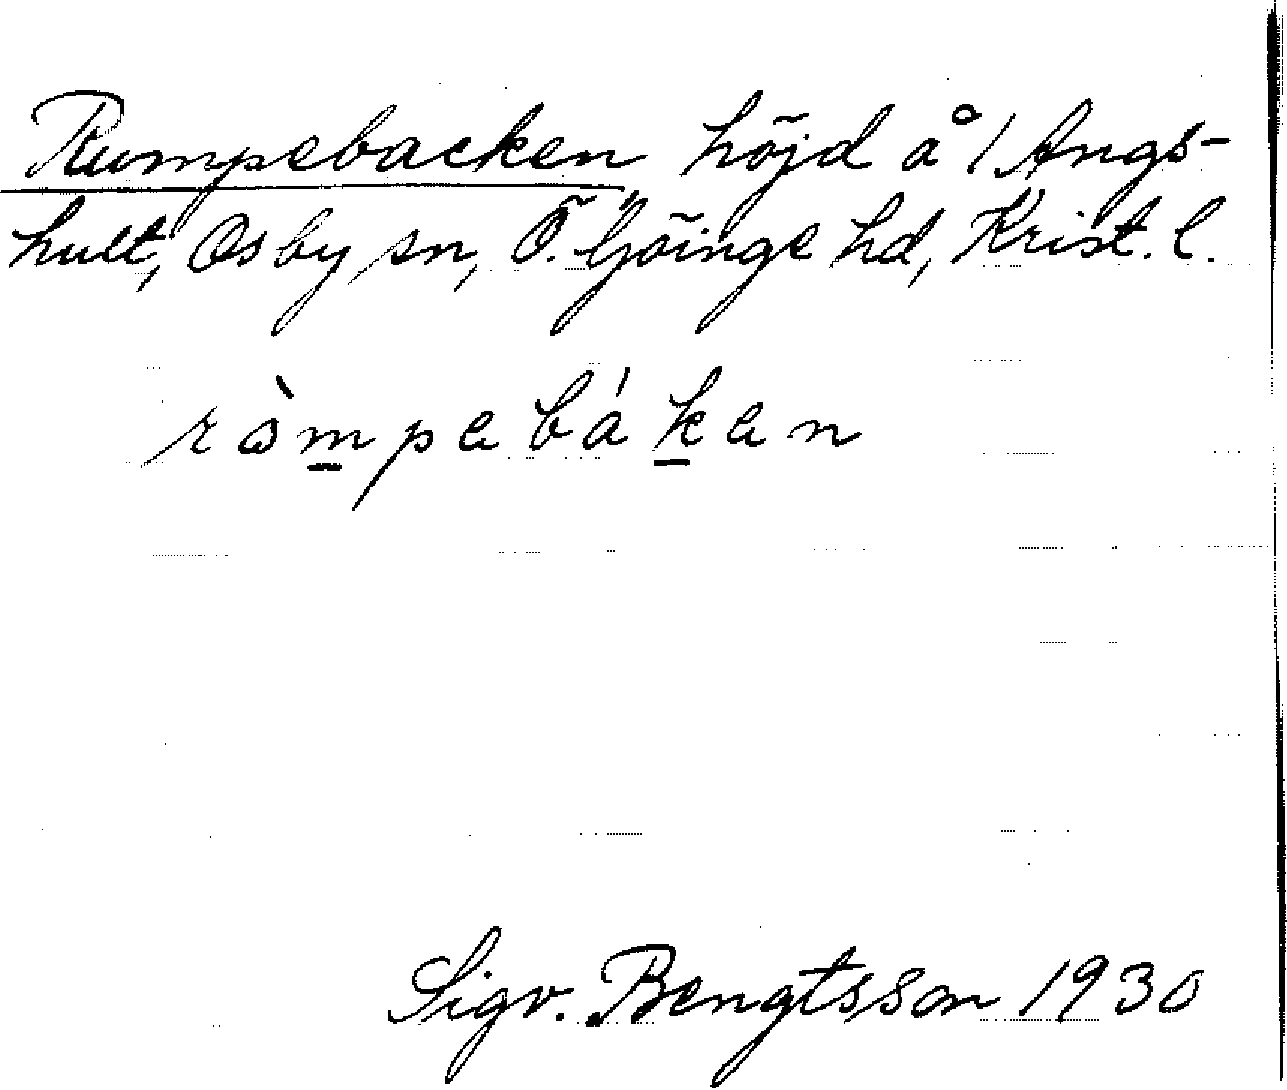 Rumpebacken höjd å 1 Angs-
hult, Osby sn, Ö. Göinge hd, Krist. l.
ròmpebáken
Sigv. Bengtsson 1930